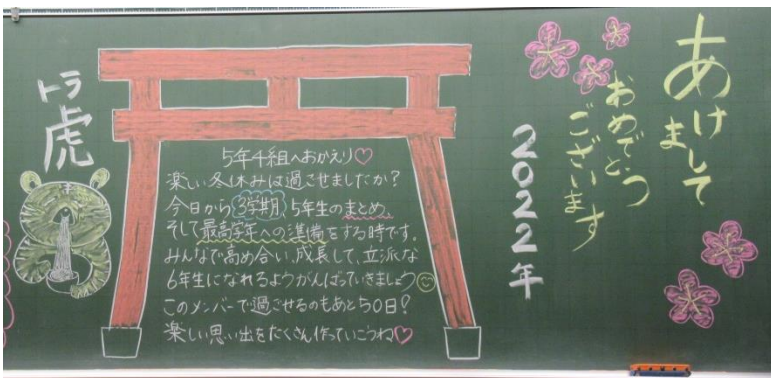 あけまして
おめでとう
ございます
2022年
5年4組へおかえり♡
楽しい冬休みは過ごせましたか?
今日から3学期 5年生のまとめ、
そして最高学年への準備をする時です。
みんなで高め合い、成長して、立派な
6年生になれるようがんばっていきましょう
このメンバーで過ごせるのもあと50日!
楽しい思い出をたくさん作っていこうね♡
トラ
虎